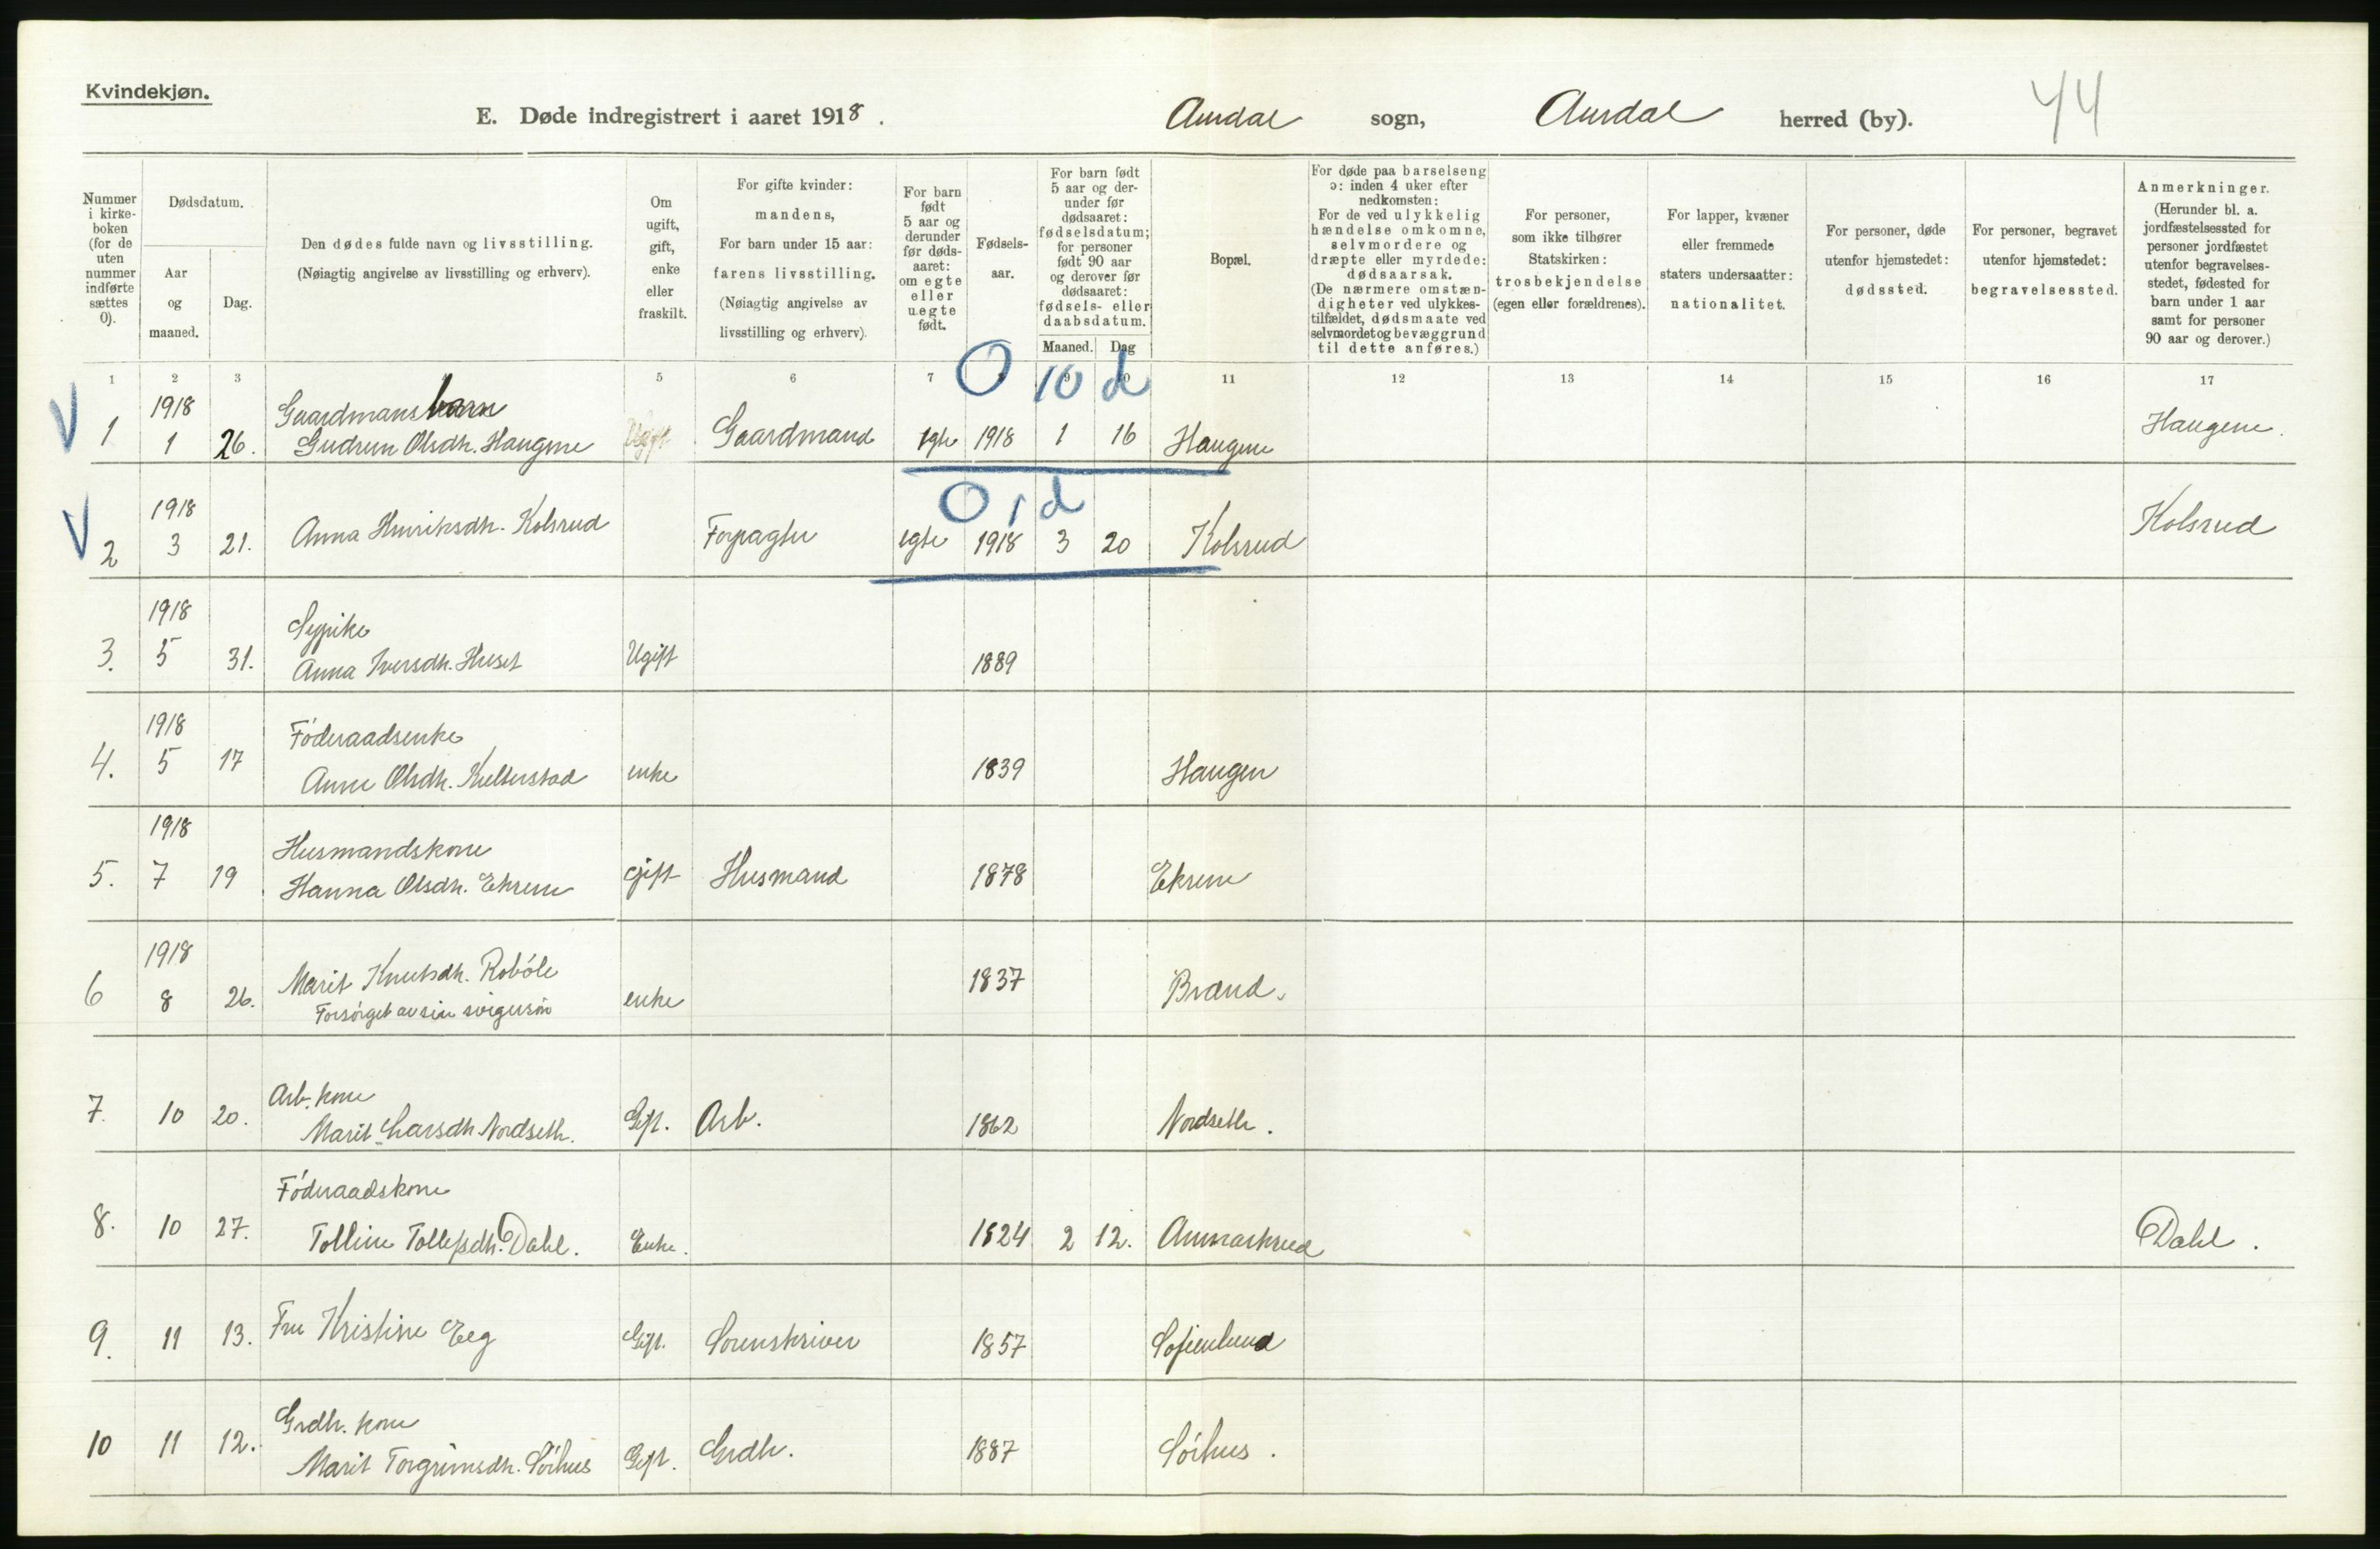 Kvindekjøn.
E. Døde indregistrert i aaret 1918. Aurdal sogn, Aurdal herred (by). 44
Nummer i kirkeboken (for de uten nummer indførte sættes 0).
Dødsdatum.
Aar og maaned.
Dag.
Den dødes fulde navn og livsstilling.
(Nøiagtig angivelse av livsstilling og erhverv).
Om ugift, gift, enke eller fraskilt.
For gifte kvinder: mandens,
For barn under 15 aar: farens livsstilling.
(Nøiagtig angivelse av livsstilling og erhverv).
For barn født 5 aar og derunder før dødsaaret: om egte eller uegte født.
Fødselsaar.
For barn født 5 aar og derunder før dødsaaret: fødselsdatum; for personer født 90 aar og derover før dødsaaret: fødsels- eller daabsdatum.
Maaned. Dag
Bopæl.
For døde paa barselseng ɔ: inden 4 uker efter nedkomsten:
For de ved ulykkelig hændelse omkomne, selvmordere og dræpte eller myrdede: dødsaarsak.
(De nærmere omstændigheter ved ulykkestilfældet, dødsmaate ved selvmordet og bevæggrund til dette anføres.)
For personer, som ikke tilhører Statskirken: trosbekjendelse (egen eller forældrenes).
For lapper, kvæner eller fremmede staters undersaatter: nationalitet.
For personer, døde utenfor hjemstedet: dødssted.
For personer, begravet utenfor hjemstedet: begravelsessted.
Anmerkninger.
(Herunder bl. a. jordfæstelsessted for personer jordfæstet utenfor begravelsesstedet, fødested for barn under 1 aar samt for personer 90 aar og derover.)
1 2 3 5 6 7 9 11 12 13 14 15 16 17
0 10 d
V 1918 Gaardmansbarn
1 1 26. Gudrun Olsdtr. Haugene Ugift Gaardmand egte 1918 1 16 Haugene Haugene.
0 1 d
V 1918
2 3 21. Anna Henriksdtr. Kolsrud Forpagter egte 1918 3 20 Kolsrud Kolsrud
1918 Sypike
3. 5 31. Anna Iversdtr. Huset Ugift 1889
1918 Föderaadsenke
4. 5 17 Anne Olsdtr. enke 1839 Haugen
1918 Husmandskone
5. 7 19 Hanna Olsdtr. Ekrene gift Husmand 1878 Ekrene
1918 Marit Knutsdtr. Roböle
6 8 26. Forsörget av sin svigersön enke 1837 Brand.
Arb. kone
7. 10 20. Marit Larsdtr Nordseth. Gift. Arb. 1862 Nordseth.
Föderaadskone
8. 10 27. Tolline Tollefsdtr. Dahl. Enke. 1824 2 12. Dahl.
9. 11 13. Fru Kristine Eeg Gift. Sorenskriver 1857 Sofienlund
Grdbr. kone
10 11 12. Marit Torgrimsdtr. Sörhus Gift. Grdbr. 1887 Sörhus.